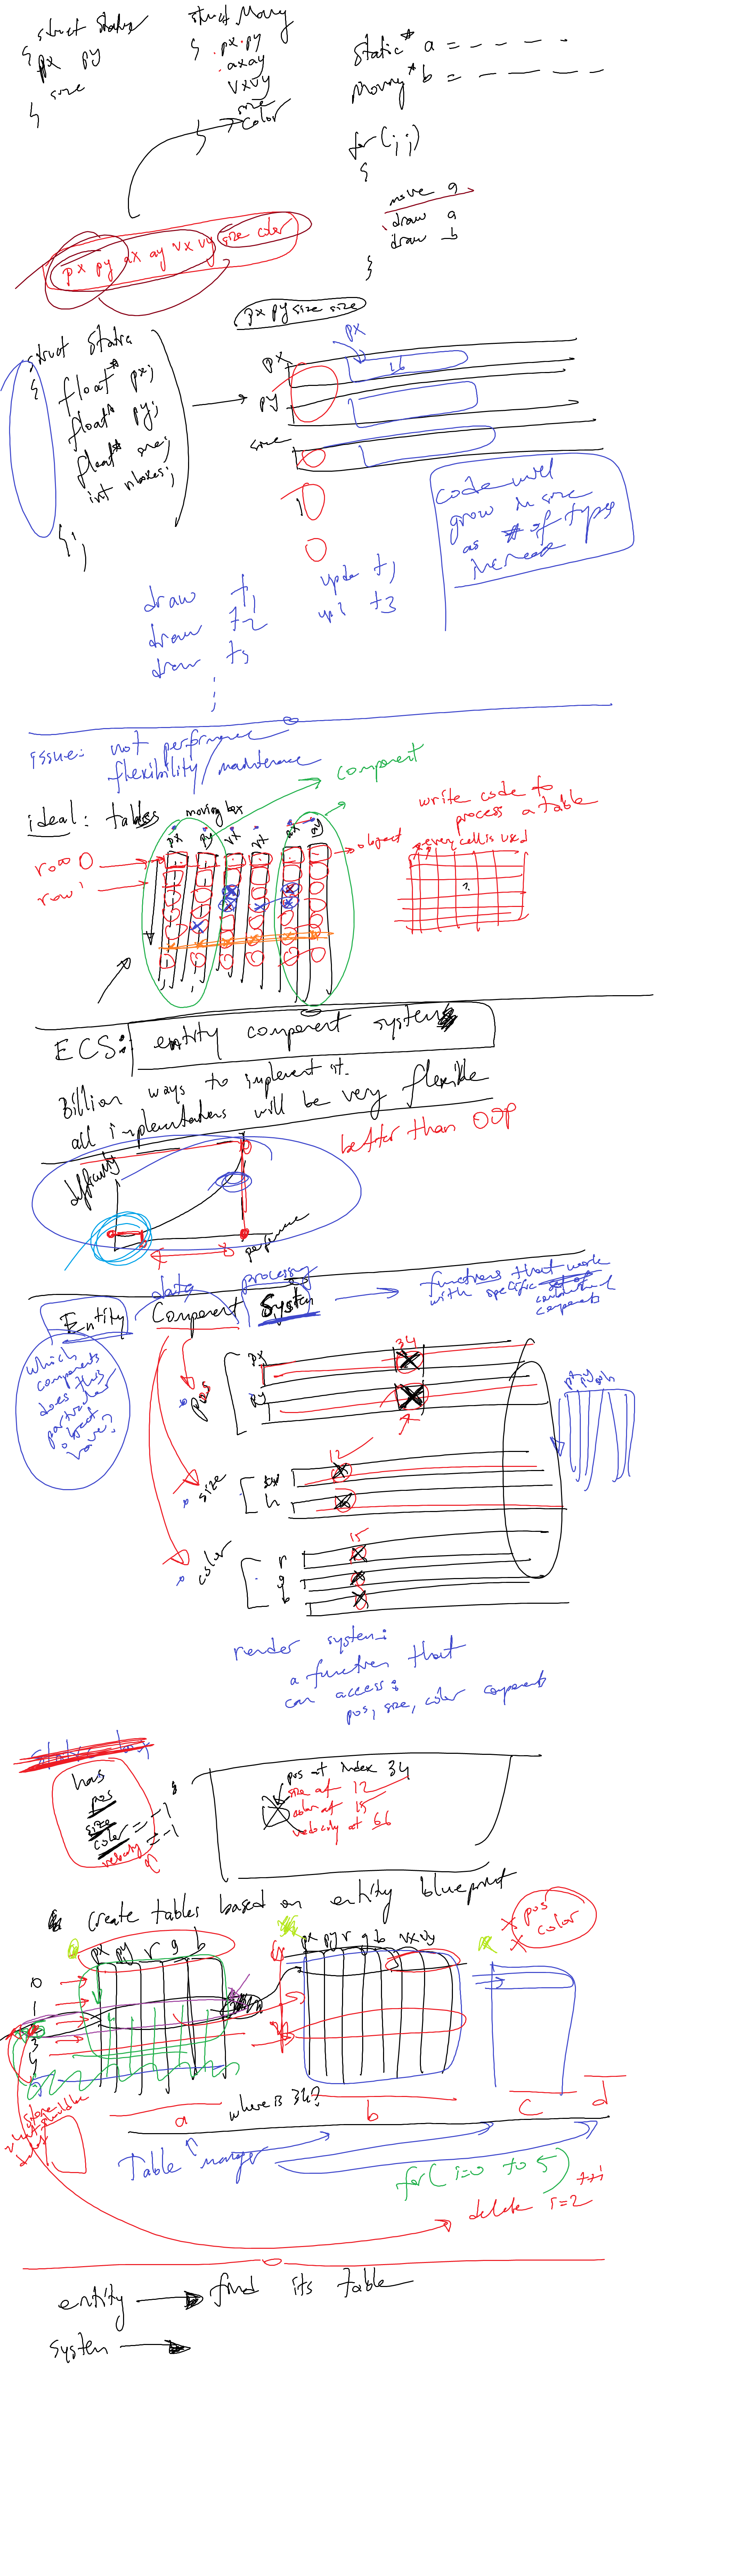 struct Static
{
px py
size
}
struct Moving
{ px py
ax ay
vx vy
size
color
}
static* a = - - - -
Moving* b = - - - -
for(;;)
{
move a
draw a
draw b
}
px py ax ay vx vy size color
px py size size
struct Static
{
float* px;
float* py;
float* size;
int nboxes;
};
px
px
16
py
size
code will
grow in size
as # of types
increase
draw t1
draw t2
draw t3
update t1
upd t3
issue: not performance
flexibility/maintenance
ideal: tables
moving box
component
px py vx vy ax ay
row 0
row 1
object
write code to
process a table
every cell is used
?
ECS: entity component system
Billion ways to implement it.
all implementations will be very flexible
better than OOP
difficulty
performance
data
processing
Entity Component System
functions that work
with specific set of
components
which
components
does this
particular
object
have?
pos
px
py
34
size
h
12
color
r
g
b
15
px py
render system:
a function that
can access:
pos, size, color components
static box
has
pos
size
color = -1
velocity = -1
pos at index 34
size at 12
color at 15
velocity at 66
create tables based on entity blueprint
pos
color
px py r g b
px py r g b vx vy
0
1
3
4
where is 34?
a
b
c
d
Table manager
for( i=0 to 5) ++i
delete i=2
entity → find its table
system →